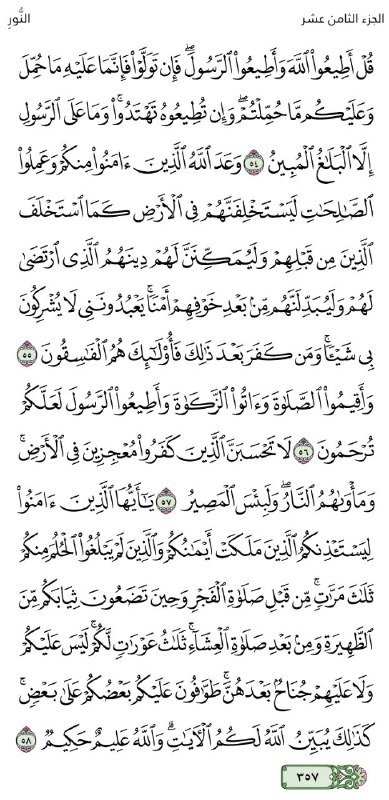 الجزء الثامن عشر النُّورِ
قُلۡ أَطِيعُواْ ٱللَّهَ وَأَطِيعُواْ ٱلرَّسُولَۖ فَإِن تَوَلَّوۡاْ فَإِنَّمَا عَلَيۡهِ مَا حُمِّلَ
وَعَلَيۡكُم مَّا حُمِّلۡتُمۡۖ وَإِن تُطِيعُوهُ تَهۡتَدُواْۚ وَمَا عَلَى ٱلرَّسُولِ
إِلَّا ٱلۡبَلَٰغُ ٱلۡمُبِينُ ٥٤ وَعَدَ ٱللَّهُ ٱلَّذِينَ ءَامَنُواْ مِنكُمۡ وَعَمِلُواْ
ٱلصَّٰلِحَٰتِ لَيَسۡتَخۡلِفَنَّهُمۡ فِي ٱلۡأَرۡضِ كَمَا ٱسۡتَخۡلَفَ
ٱلَّذِينَ مِن قَبۡلِهِمۡ وَلَيُمَكِّنَنَّ لَهُمۡ دِينَهُمُ ٱلَّذِي ٱرۡتَضَىٰ
لَهُمۡ وَلَيُبَدِّلَنَّهُم مِّنۢ بَعۡدِ خَوۡفِهِمۡ أَمۡنٗاۚ يَعۡبُدُونَنِي لَا يُشۡرِكُونَ
بِي شَيۡـٔٗاۚ وَمَن كَفَرَ بَعۡدَ ذَٰلِكَ فَأُوْلَٰٓئِكَ هُمُ ٱلۡفَٰسِقُونَ ٥٥
وَأَقِيمُواْ ٱلصَّلَوٰةَ وَءَاتُواْ ٱلزَّكَوٰةَ وَأَطِيعُواْ ٱلرَّسُولَ لَعَلَّكُمۡ
تُرۡحَمُونَ ٥٦ لَا تَحۡسَبَنَّ ٱلَّذِينَ كَفَرُواْ مُعۡجِزِينَ فِي ٱلۡأَرۡضِۚ
وَمَأۡوَىٰهُمُ ٱلنَّارُۖ وَلَبِئۡسَ ٱلۡمَصِيرُ ٥٧ يَٰٓأَيُّهَا ٱلَّذِينَ ءَامَنُواْ
لِيَسۡتَـٔۡذِنكُمُ ٱلَّذِينَ مَلَكَتۡ أَيۡمَٰنُكُمۡ وَٱلَّذِينَ لَمۡ يَبۡلُغُواْ ٱلۡحُلُمَ مِنكُمۡ
ثَلَٰثَ مَرَّٰتٖۚ مِّن قَبۡلِ صَلَوٰةِ ٱلۡفَجۡرِ وَحِينَ تَضَعُونَ ثِيَابَكُم مِّنَ
ٱلظَّهِيرَةِ وَمِنۢ بَعۡدِ صَلَوٰةِ ٱلۡعِشَآءِۚ ثَلَٰثُ عَوۡرَٰتٖ لَّكُمۡۚ لَيۡسَ عَلَيۡكُمۡ
وَلَا عَلَيۡهِمۡ جُنَاحُۢ بَعۡدَهُنَّۚ طَوَّٰفُونَ عَلَيۡكُم بَعۡضُكُمۡ عَلَىٰ بَعۡضٖۚ
كَذَٰلِكَ يُبَيِّنُ ٱللَّهُ لَكُمُ ٱلۡأٓيَٰتِۗ وَٱللَّهُ عَلِيمٌ حَكِيمٞ ٥٨
٣٥٧